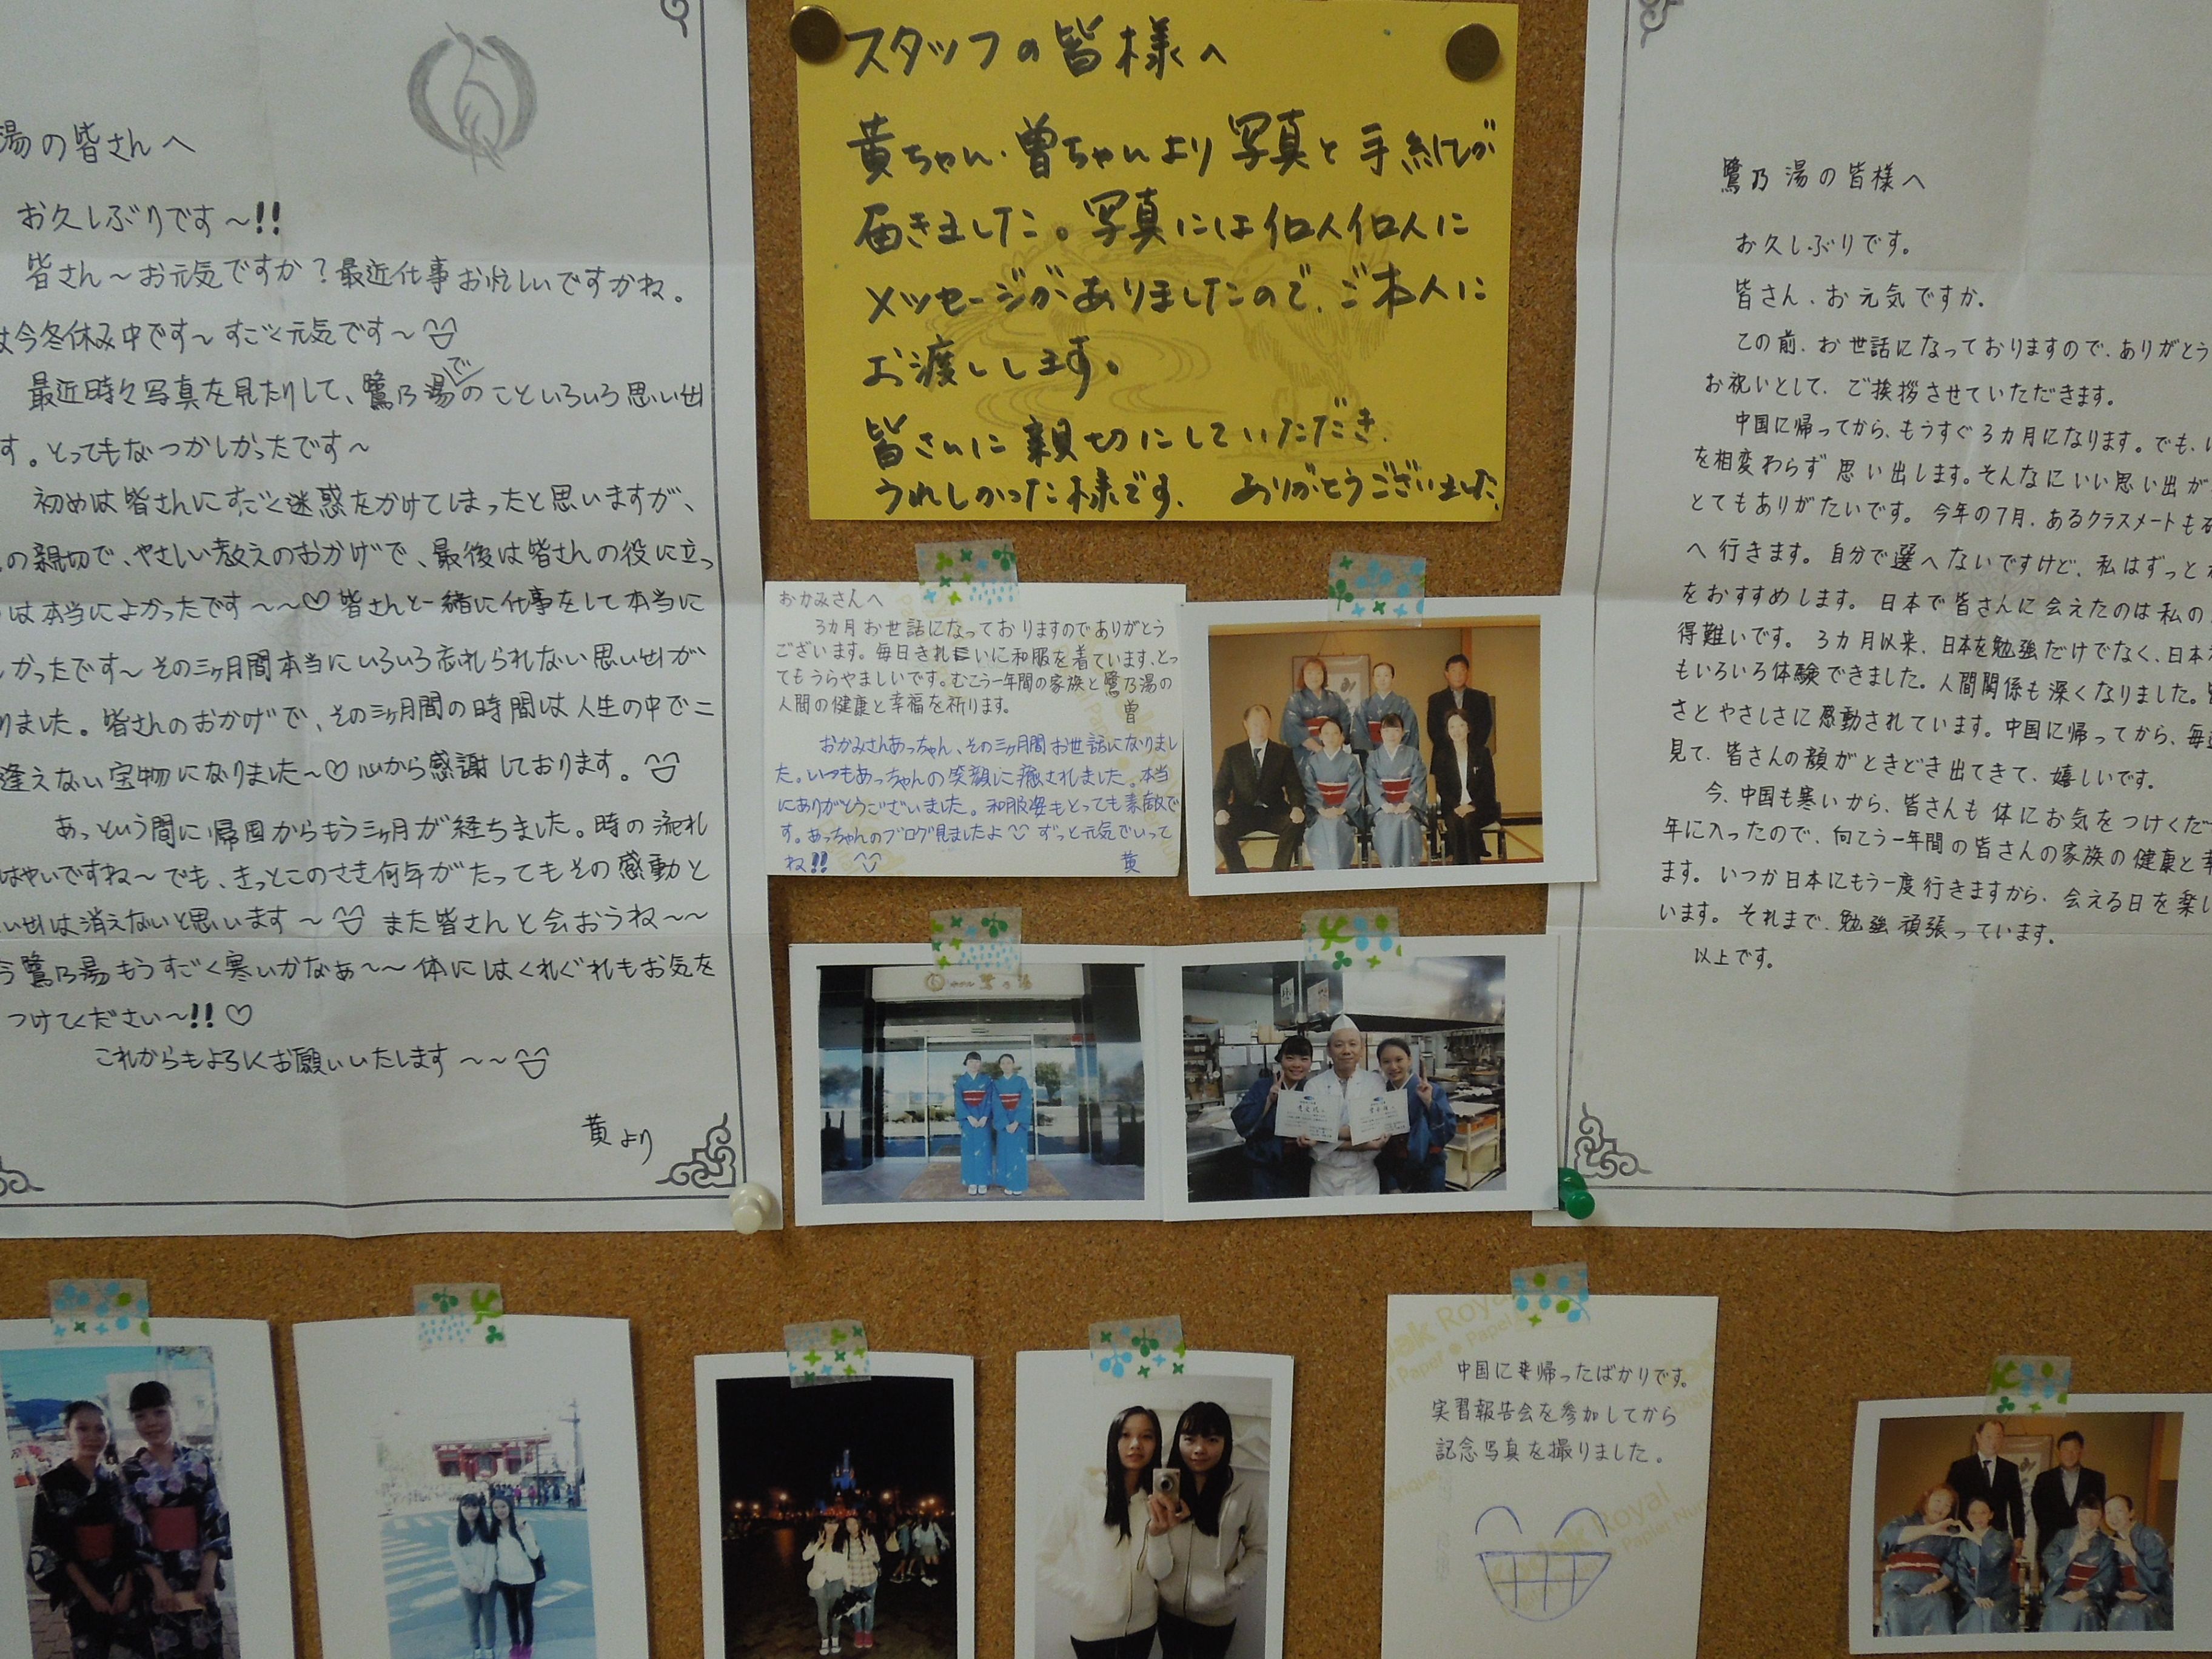 湯の皆さんへ
お久しぶりです～!!
皆さん～お元気ですか？最近仕事お忙しいですかね。
は今冬休み中です～すごく元気です～
最近時々写真を見たりして、鷺乃湯でのこといろいろ思い出
す。とってもなつかしかったです～
初めは皆さんにすごく迷惑をかけてしまったと思いますが、
の親切で、やさしい教えのおかげで、最後は皆さんの役に立っ
は本当によかったです～～♡皆さんと一緒に仕事をして本当に
かったです～その三ヶ月間本当にいろいろ忘れられない思い出が
りました。皆さんのおかげで、その三ヶ月間の時間は人生の中で二
逢えない宝物になりました～♡心から感謝しております。
あっという間に帰国からもう三ヶ月が経ちました。時の流れ
はやいですね～でも、きっとこのさき何年がたってもその感動と
い出は消えないと思います～また皆さんと会おうね～～
今鷺乃湯もうすごく寒いかなぁ～～体にはくれぐれもお気を
つけてください～!!♡
これからもよろしくお願いいたします～～
黄より
スタッフの皆様へ
黄ちゃん・曽ちゃんより写真と手紙が
届きました。写真には個人個人に
メッセージがありましたので、ご本人に
お渡しします。
皆さんに親切にしていただき、
うれしかった様です、ありがとうございました。
おかみさんへ
3カ月お世話になっておりますのでありがとう
ございます。毎日きれいに和服を着ています、とっ
てもうらやましいです。むこう一年間の家族と鷺乃湯の
人間の健康と幸福を祈ります。
曽
おかみさんあっちゃん、その三ヶ月間お世話になりまし
た。いつもあっちゃんの笑顔に癒されました。本当
にありがとうございました。和服姿もとっても素敵で
す。あっちゃんのブログ見ましたよ ずっと元気でいって
ね!!
黄
鷺乃湯の皆様へ
お久しぶりです。
皆さん、お元気ですか。
この前、お世話になっておりますので、ありがとう
お祝いとして、ご挨拶させていただきます。
中国に帰ってから、もうすぐ3カ月になります。でも、い
を相変わらず思い出します。そんなにいい思い出が
とてもありがたいです。今年の7月、あるクラスメートも
へ行きます。自分で選へないですけど、私はずっと
をおすすめします。日本で皆さんに会えたのは私の
得難いです。3カ月以来、日本を勉強だけでなく、日本
もいろいろ体験できました。人間関係も深くなりました。
さとやさしさに感動されています。中国に帰ってから、毎
見て、皆さんの顔がときどき出てきて、嬉しいです。
今、中国も寒いから、皆さんも体にお気をつけくだ
年に入ったので、向こう一年間の皆さんの家族の健康と幸
ます。いつか日本にもう一度行きますから、会える日を楽し
います。それまで、勉強頑張っています。
以上です。
中国に帰ったばかりです。
実習報告会を参加してから
記念写真を撮りました。